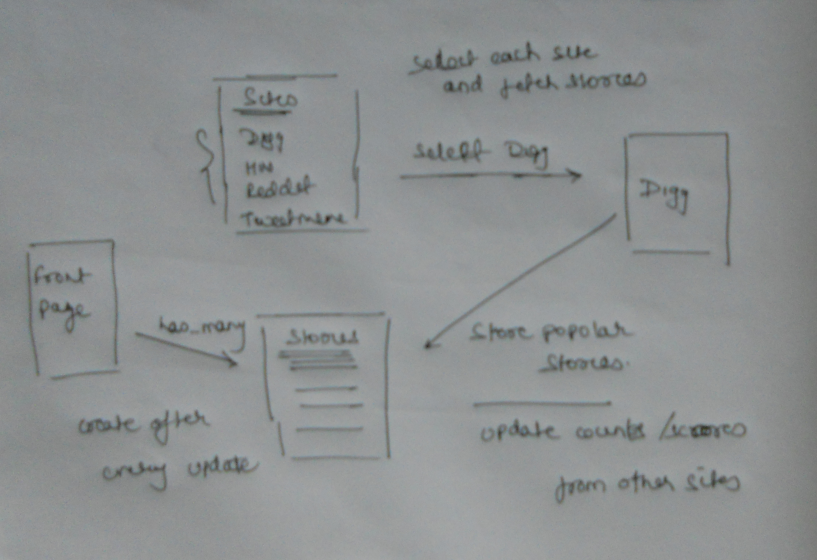 select each site
and fetch stories
Sites
Digg
HN
Reddit
Tweetmeme
select Digg
Digg
front
page
has_many
Stories
Store popular
Stories.
create after
every update
update counts / scores
from other sites